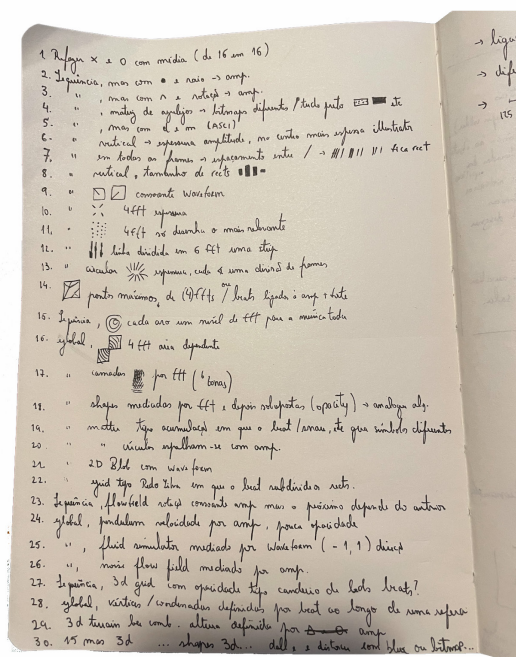 1. Refazer × e O com média (de 16 em 16)
2. Sequência, mas com • e raio → amp.
3. " , mas com n e rotação → amp.
4. " , análog de azulejos → bitmaps diferentes / tudo preto etc
5. " , mas com d e m (ASCI)
6. " vertical → espessura amplitude, no centro mais espessa illustrator
7. " em todas as frames → espaçamento entre / → fica rect
8. " vertical, tamanho de rects
9. " consoante waveform
10. " 4 fft espessura
11. " 4 fft só desenha o mais relevante
12. " linha dividida em 6 fft uma strip
13. " circular espessura, cada uma divisão de frames
14. pontos máximos de (4) ffts / ou beats ligados à amp + hate
15. Sequência, cada aro um nível de fft para a música toda
16. global, 4 fft area dependente
17. " camadas por fft (6 bonas)
18. " shapes mediadas por fft e depois sobrepostas (opacity) → analogia alg.
19. " matter tipo acumulação em que o beat / snare, etc gera símbolos diferentes
20. " " círculos espalham-se com amp.
21. " 2D Blob com waveform
22. " grid tipo em que o beat subdivide os rects.
23. Sequência, flowfield rotação consoante amp mas o próximo depende do anterior
24. global, pendulum velocidade por amp, pouca opacidade
25. " , fluid simulator mediado por waveform (-1, 1) direção
26. " , noise flow field mediado por amp.
27. Sequência, 3d grid com opacidade tipo candeeiro de leds beats?
28. global, vértices / coordenadas definidas por beat ao longo de uma esfera
29. 3d terrain bem comb. altura definida por amp
30. 15 mas 3d ... shapes 3d... e distorce com blur ou bitmap...
→ liga
→ dife
→
175